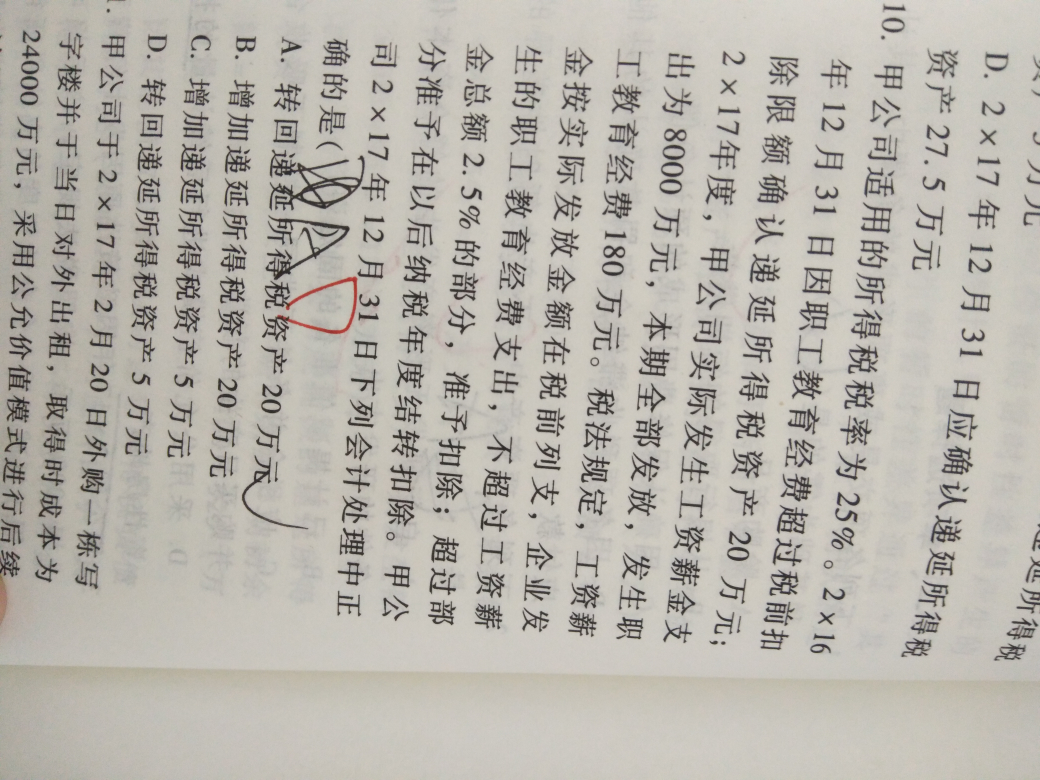 D. 2×17年12月31日应确认递延所得税
资产27.5万元
10. 甲公司适用的所得税税率为25%。2×16
年12月31日因职工教育经费超过税前扣
除限额确认递延所得税资产20万元;
2×17年度,甲公司实际发生工资薪金支
出为8000万元,本期全部发放,发生职
工教育经费180万元。税法规定,工资薪
金按实际发放金额在税前列支,企业发
生的职工教育经费支出,不超过工资薪
金总额2.5%的部分,准予扣除;超过部
分准予在以后纳税年度结转扣除。甲公
司2×17年12月31日下列会计处理中正
确的是(
A. 转回递延所得税资产20万元
B. 增加递延所得税资产20万元
C. 增加递延所得税资产5万元
D. 转回递延所得税资产5万元
1. 甲公司于2×17年2月20日外购一栋写
字楼并于当日对外出租,取得时成本为
24000万元,采用公允价值模式进行后续